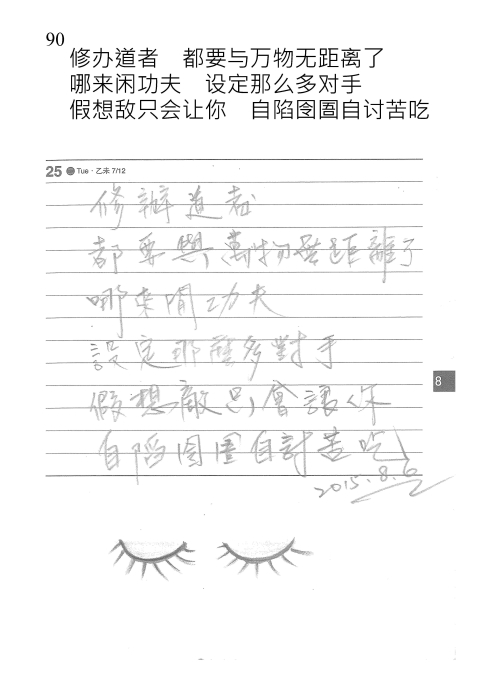 90
修办道者　都要与万物无距离了
哪来闲功夫　设定那么多对手
假想敌只会让你　自陷囹圄自讨苦吃
25 Tue · 乙未 7/12
修辦道者
都要與萬物無距離了
哪來閒功夫
設定那麼多對手
假想敵只會讓你
自陷囹圄自討苦吃
2015.8.6
8